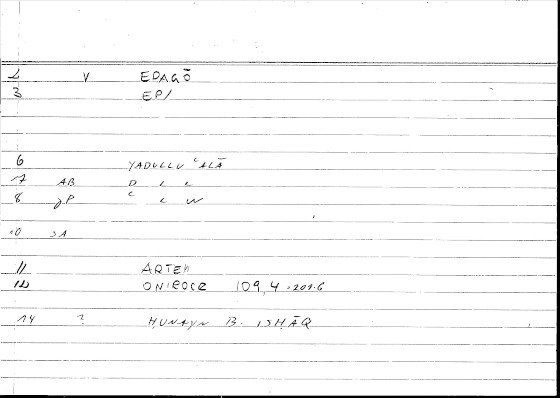 2 V EPAGŌ
3 EPI
6 YADULLU ʿALĀ
7 AB D L L
8 gP ʿ L W
10 SA
11 ARTEM
12 ONIROCR 109,4 - 201.6
14 ? ḤUNAYN B. ISḤĀQ